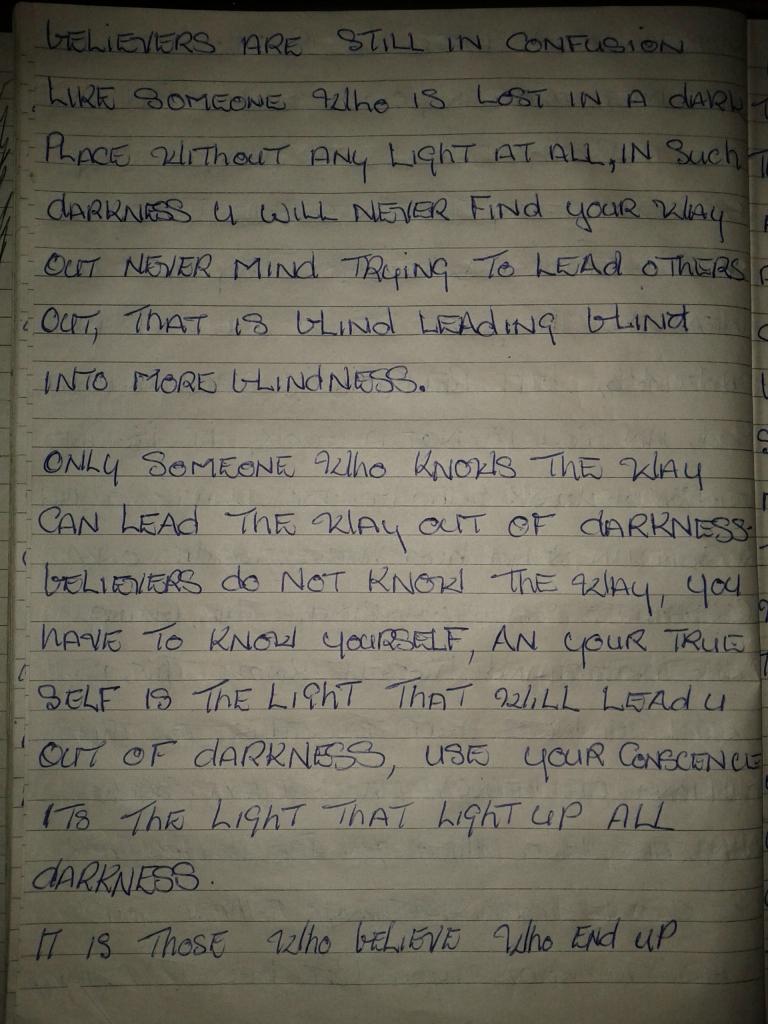 BELIEVERS ARE STILL IN CONFUSION
LIKE SOMEONE Who IS LOST IN A dARK
PLACE WITHOUT ANY LIGhT AT ALL, IN Such
dARKNESS U WILL NEVER FIND YOUR WAY
OUT NEVER MIND TRyING To LEAd oTHERS
OUT, THAT IS bLINd LEADING bLINd
INTO MORE bLINdNESS.
ONLY SOMEONE Who KNOWS ThE WAY
CAN LEAd ThE WAY OUT OF dARKNESS.
bELIEVERS do NOT KNOW ThE WAY, YOU
HAVE To KNOW YOURSELF, AN YOUR TRUE
SELF IS ThE LIGhT ThAT WILL LEAd U
OUT OF dARKNESS, USE YOUR CONSCENCE
ITS ThE LIGhT ThAT LIGhT UP ALL
dARKNESS.
IT IS ThOSE Who bELIEVE Who ENd UP